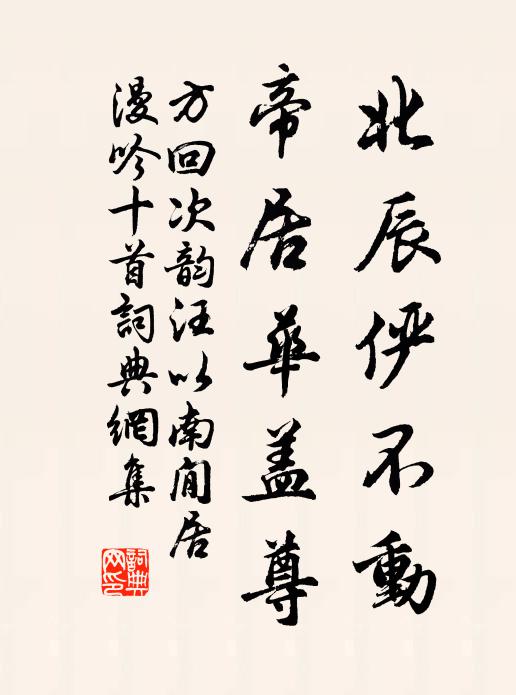 北辰俨不動
帝居華盖尊
方回次韵汪以南閒居
漫吟十首詞典網集
詞典網印